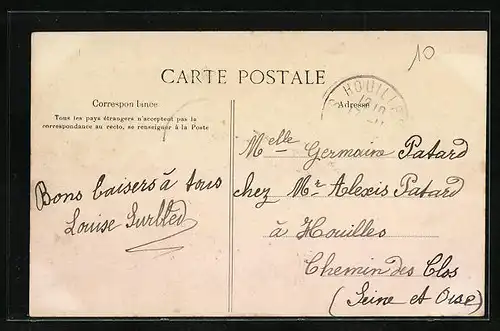 10
CARTE POSTALE
Correspondance
Tous les pays étrangers n'acceptent pas la
correspondance au recto, se renseigner à la Poste
Adresse
HOUILLES
Bons baisers à tous
Louise Surbled
Melle Germaine Patard
chez Mr Alexis Patard
à Houilles
Chemin des Clos
(Seine et Oise)